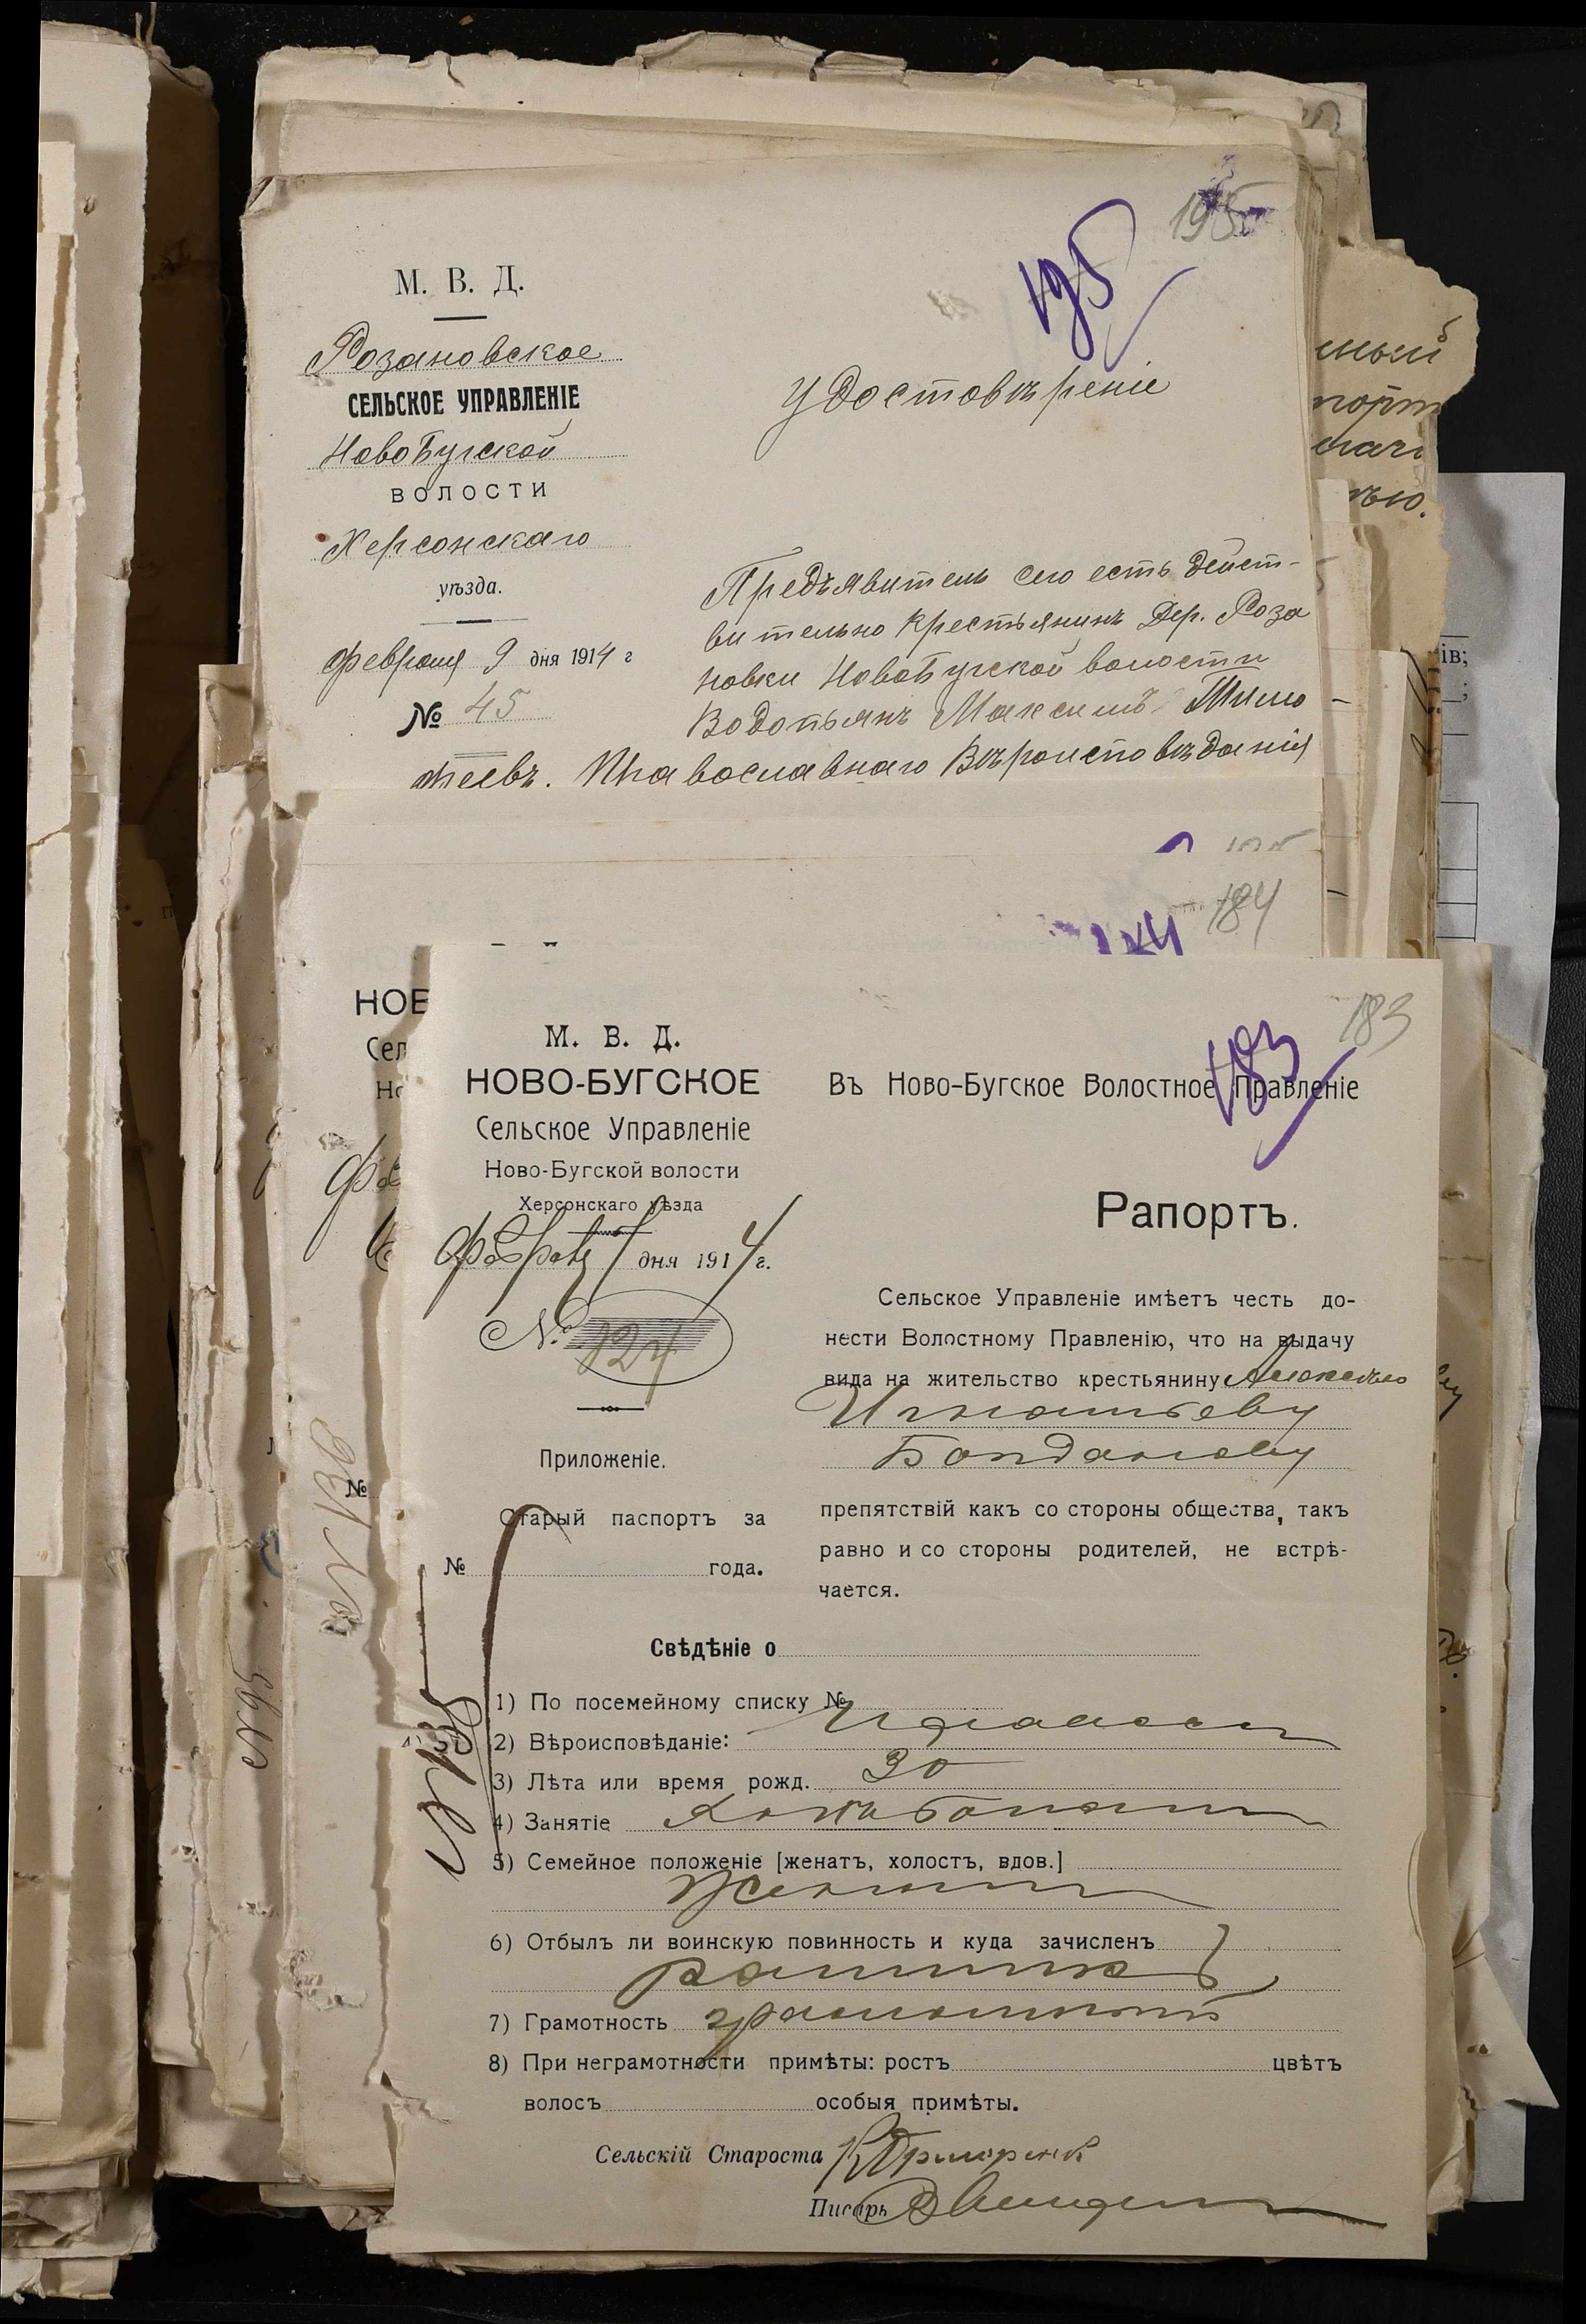 195
195
М. В. Д.
Розановское
СЕЛЬСКОЕ УПРАВЛЕНІЕ
НовоБугской
ВОЛОСТИ
Херсонскаго
уѣзда.
Февраля 9 дня 1914 г
№ 45
Удостовѣреніе
Предъявитель сего есть дейст-
вительно крестьянинъ Дер. Роза
новки НовоБугской волости
Водопьянъ Максимъ Тимо
феевъ. Православнаго Вѣроисповѣданія
184
НОВ
Сел
Но
№
183
183
М. В. Д.
НОВО-БУГСКОЕ
Сельское Управленіе
Ново-Бугской волости
Херсонскаго уѣзда
дня 1914 г.
№ 124
Приложеніе.
Старый паспортъ за
№ года.
Въ Ново-Бугское Волостное Правленіе
Рапортъ.
Сельское Управленіе имѣетъ честь до-
нести Волостному Правленію, что на выдачу
вида на жительство крестьянину Алексѣю
Игнатьеву
Богданову
препятствій какъ со стороны общества, такъ
равно и со стороны родителей, не встрѣ-
чается.
Свѣдѣніе о
1) По посемейному списку №
2) Вѣроисповѣданіе:
3) Лѣта или время рожд. 30
4) Занятіе
5) Семейное положеніе [женатъ, холостъ, вдов.]
Женатъ
6) Отбылъ ли воинскую повинность и куда зачисленъ
ратникъ
7) Грамотность грамотный
8) При неграмотности примѣты: ростъ цвѣтъ
волосъ особыя примѣты.
Сельскій Староста
Писарь